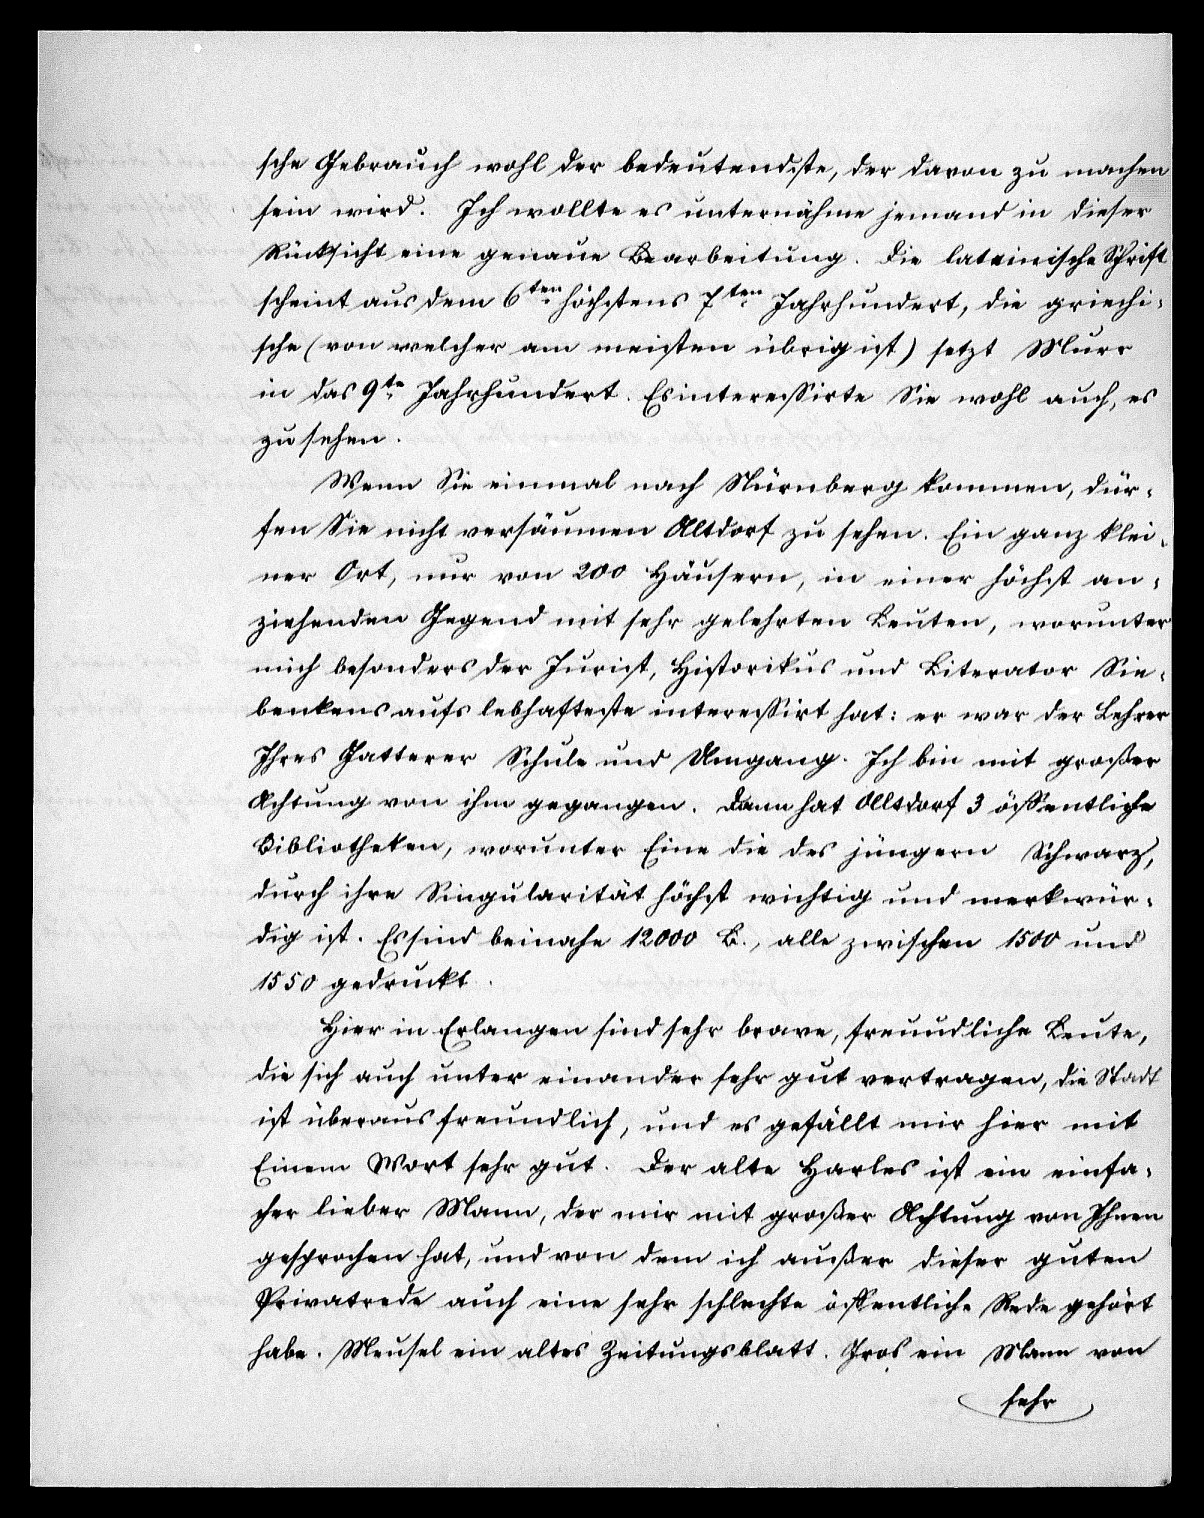 sche Gebrauch wohl der bedeutendste, der davon zu machen
sein wird. Ich wollte es unternähme jemand in dieser
Rücksicht eine genaue Bearbeitung. Die lateinische Schrift
scheint aus dem 6ten höchstens 7ten Jahrhundert, die griechi-
sche (von welcher am meisten übrig ist) setzt Murr
in das 9te Jahrhundert. Es interessirte Sie wohl auch, es
zu sehen.
Wenn Sie einmal nach Nürnberg kommen, dür-
fen Sie nicht versäumen Altdorf zu sehen. Ein ganz klei-
ner Ort, nur von 200 Häusern, in einer höchst an-
ziehenden Gegend mit sehr gelehrten Leuten, worunter
mich besonders der Jurist, Historikus und Literator Sie-
benkens aufs lebhafteste interessirt hat: er war der Lehrer
Ihres Gatterer Schule und Umgang. Ich bin mit großer
Achtung von ihm gegangen. Dann hat Altdorf 3 öffentliche
Bibliotheken, worunter Eine die des jüngern Schwarz,
durch ihre Singularität höchst wichtig und merkwür-
dig ist. Es sind beinahe 12000 B., alle zwischen 1500 und
1550 gedruckt.
Hier in Erlangen sind sehr brave, freundliche Leute,
die sich auch unter einander sehr gut vertragen, die Stadt
ist überaus freundlich, und es gefällt mir hier mit
Einem Wort sehr gut. Der alte Harles ist ein einfa-
cher lieber Mann, der mir mit großer Achtung von Ihnen
gesprochen hat, und von dem ich außer dieser guten
Privatrede auch eine sehr schlechte öffentliche Rede gehört
habe. Meusel ein altes Zeitungsblatt. Gros ein Mann von
sehr